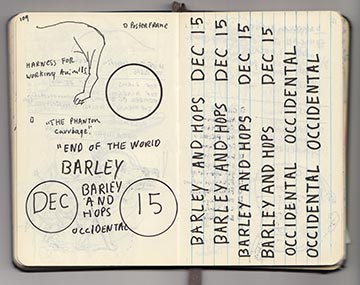 109
PosterFrame
HARNESS FOR
WORKING ANiMALS
"THE PHANTOM
Carriage!"
"END OF THE WORLD
BARLEY
BARlEY
AND
HOPS
DEC
15
OCCIDENTAL
BARLEY AND HOPS DEC 15
BARLEY AND HOPS DEC 15
BARLEY AND HOPS DEC 15
BARLEY AND HOPS DEC 15
OCCIDENTAL OCCIDENTAL
OCCIDENTAL OCCIDENTAL